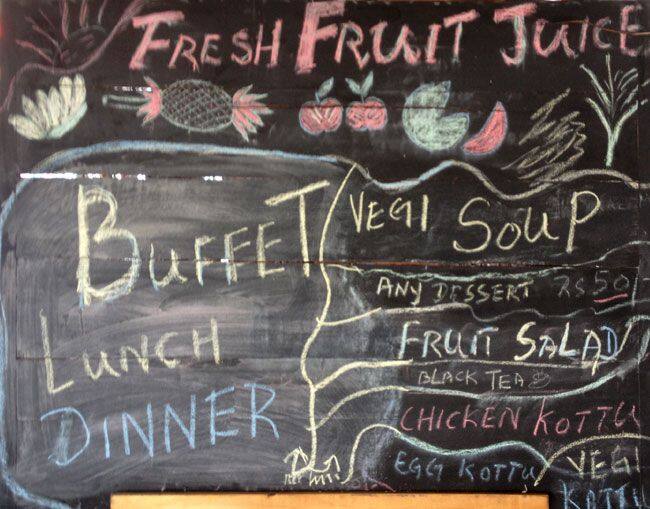 FRESH FRUIT JUICE
BUFFET
LUNCH
DINNER
VEGI SOUP
ANY DESSERT RS 50
FRUIT SALAD
BLACK TEA
CHICKEN KOTTU
EGG KOTTU
VEGI
KOTTU